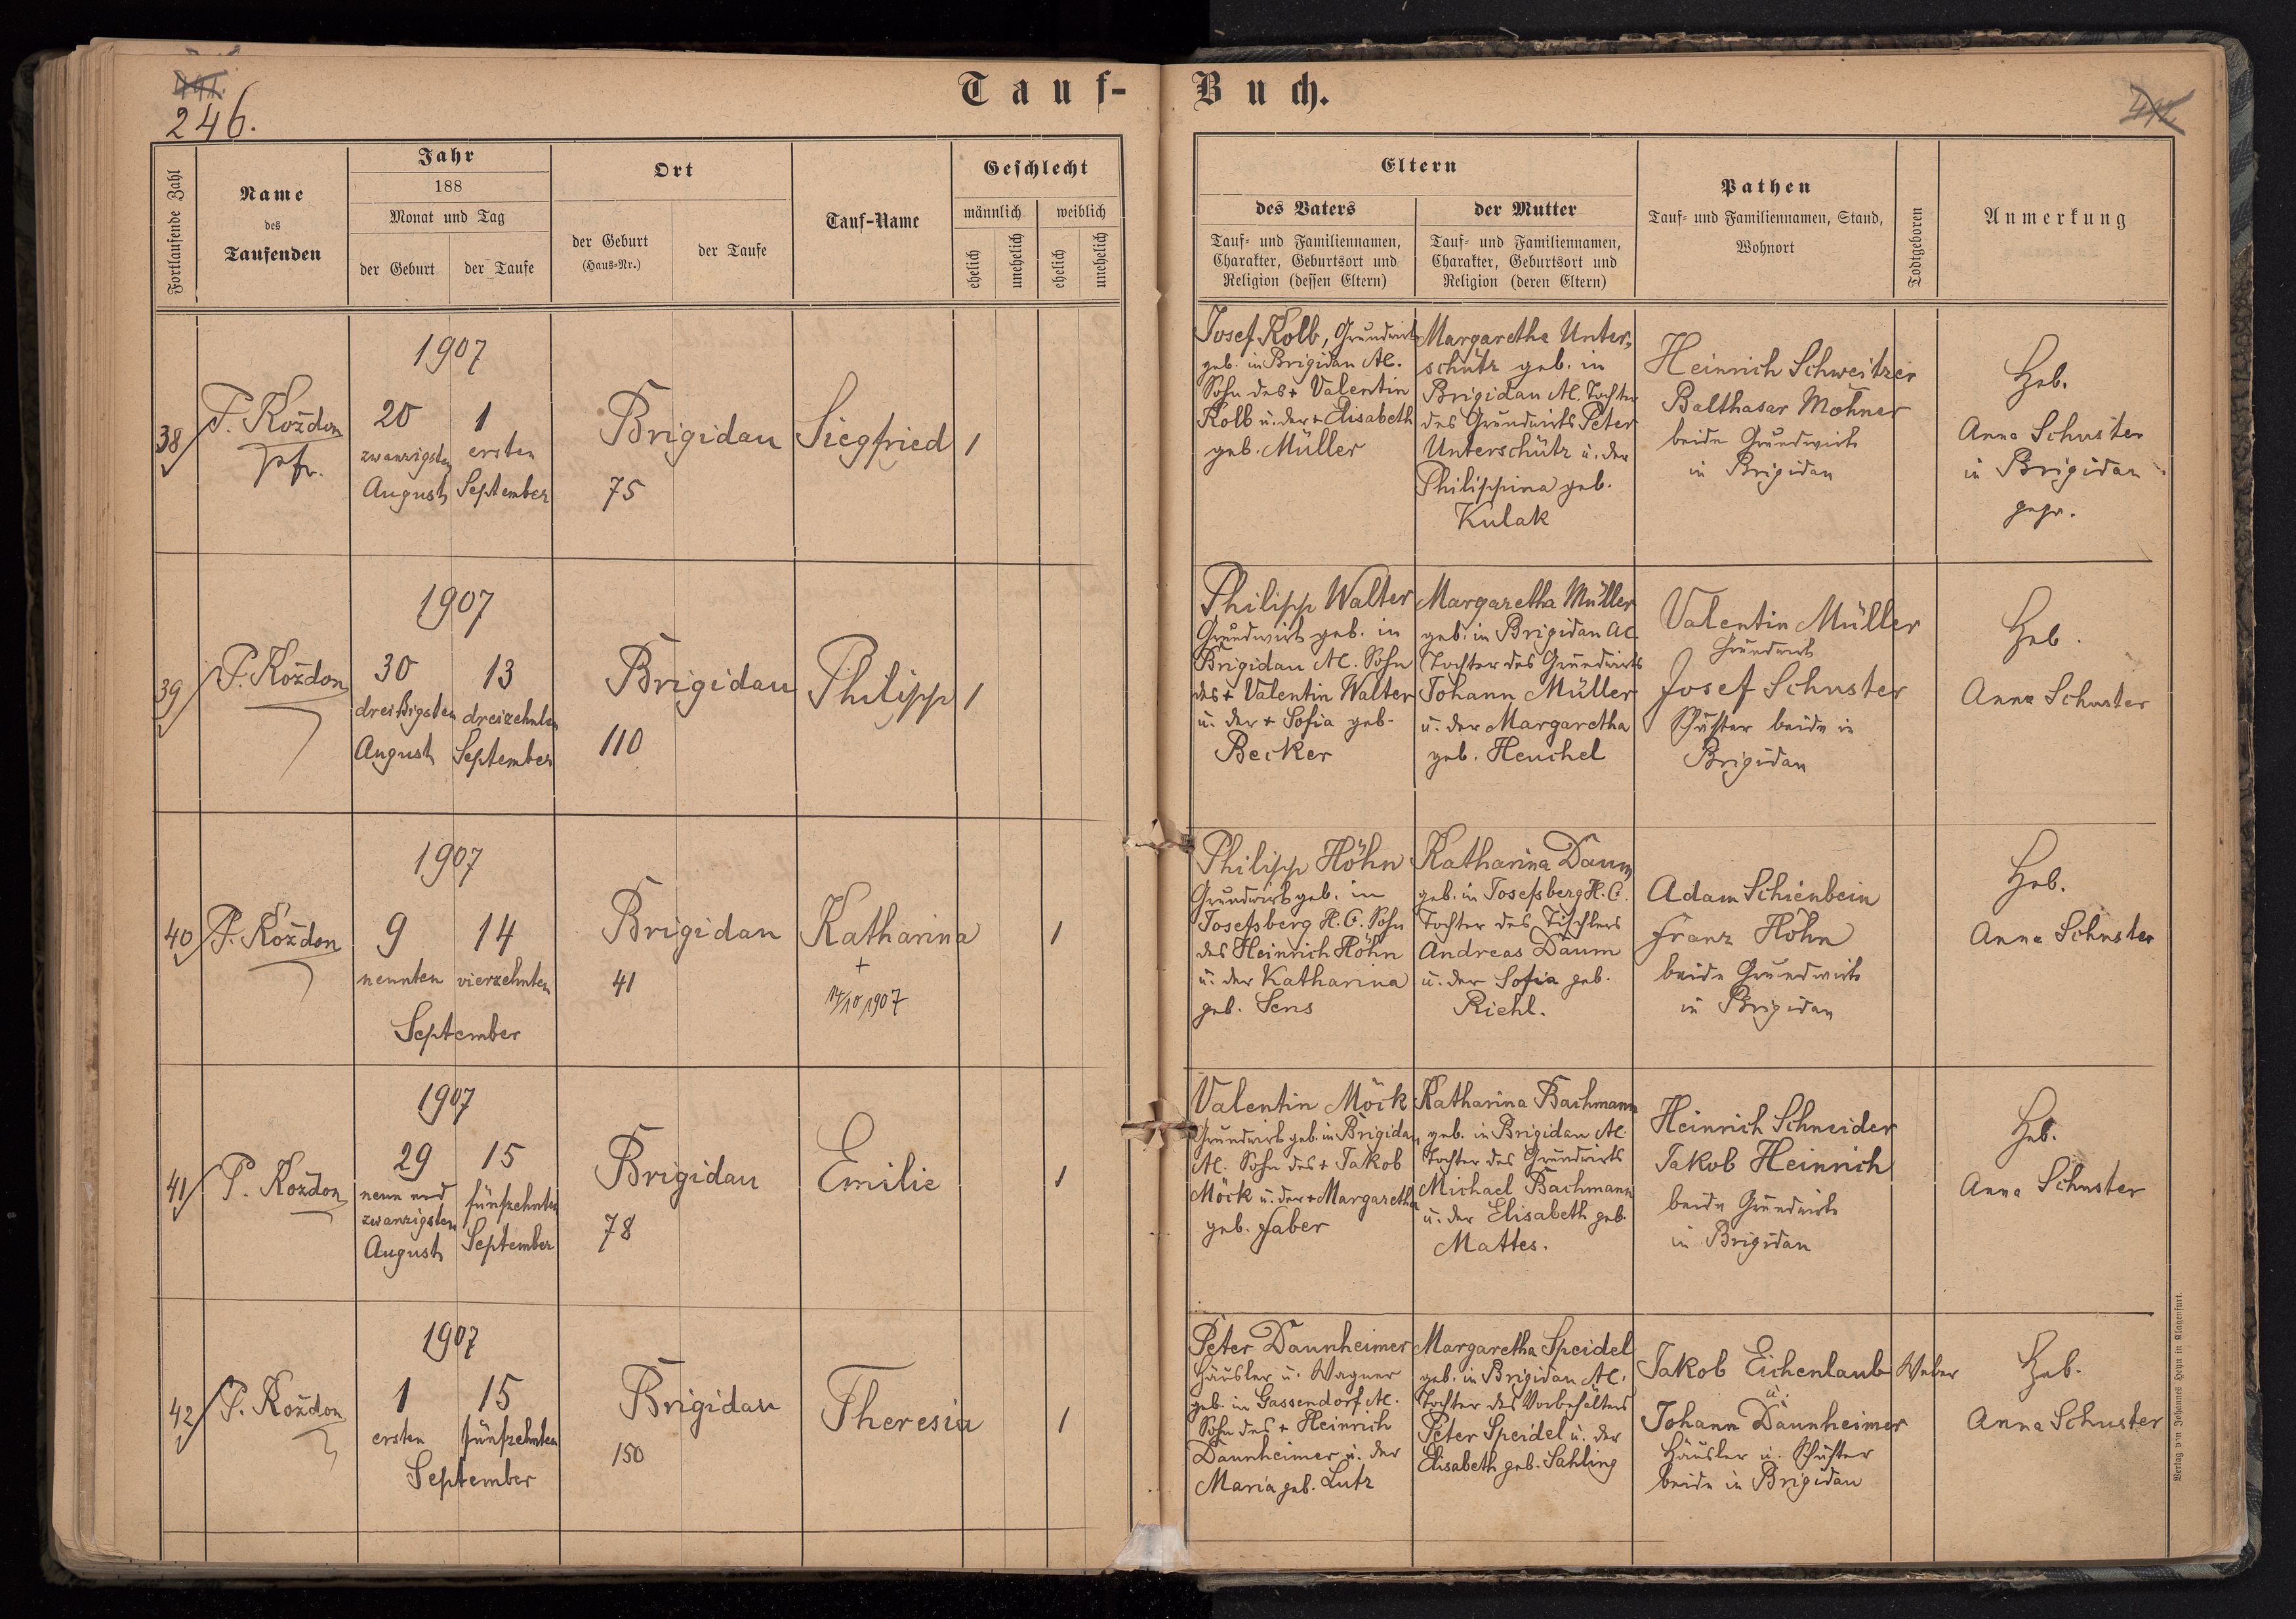 246.
Tauf-Buch.
Fortlaufende Zahl
Name
des
Taufenden
Jahr
188
Monat und Tag
der Geburt
der Taufe
Ort
der Geburt
(Haus-Nr.)
der Taufe
Tauf-Name
Geschlecht
männlich
weiblich
ehelich
unehelich
ehelich
unehelich
Eltern
des Vaters
Tauf- und Familiennamen,
Charakter, Geburtsort und
Religion (dessen Eltern)
der Mutter
Tauf- und Familiennamen,
Charakter, Geburtsort und
Religion (deren Eltern)
Pathen
Tauf- und Familiennamen, Stand,
Wohnort
Todtgeboren
Anmerkung
38
P. Koždon
Pfr.
1907
20
zwanzigsten
August
1
ersten
September
Brigidau
75
Siegfried
1
Josef Kolb, Grundwirt
geb. in Brigidau AC.
Sohn des + Valentin
Kolb u. der + Elisabeth
geb. Müller
Margaretha Unter-
schütz geb. in
Brigidau AC. Tochter
des Grundwirts Peter
Unterschütz u. der
Philippina geb.
Kulak
Heinrich Schweitzer
Balthasar Möhner
beide Grundwirte
in Brigidau
Heb.
Anna Schuster
in Brigidau
gepr.
39
P. Koždon
1907
30
dreißigsten
August
13
dreizehnten
September
Brigidau
110
Philipp
1
Philipp Walter
Grundwirt geb. in
Brigidau AC. Sohn
des + Valentin Walter
u. der + Sofia geb.
Becker
Margaretha Müller
geb. in Brigidau AC.
Tochter des Grundwirts
Johann Müller
u. der Margaretha
geb. Heuchel
Valentin Müller
Grundwirt
Josef Schuster
Schuster beide in
Brigidau
Heb.
Anna Schuster
40
P. Koždon
1907
9
neunten
14
vierzehnten
September
Brigidau
41
Katharina
+
14/10 1907
1
Philipp Höhn
Grundwirt geb. in
Josefsberg H.C. Sohn
des Heinrich Höhn
u. der Katharina
geb. Sens
Katharina Daum
geb. in Josefsberg H.C.
Tochter des Tischlers
Andreas Daum
u. der Sofia geb.
Riehl.
Adam Schienbein
Franz Höhn
beide Grundwirte
in Brigidau
Heb.
Anna Schuster
41
P. Koždon
1907
29
neun und
zwanzigsten
August
15
fünfzehnten
September
Brigidau
78
Emilie
1
Valentin Möck
Grundwirt geb. in Brigidau
AC. Sohn des + Jakob
Möck u. der + Margaretha
geb. Faber
Katharina Bachmann
geb. in Brigidau AC.
Tochter des Grundwirts
Michael Bachmann
u. der Elisabeth geb.
Mattes.
Heinrich Schneider
Jakob Heinrich
beide Grundwirte
in Brigidau
Heb.
Anna Schuster
42
P. Koždon
1907
1
ersten
15
fünfzehnten
September
Brigidau
150
Theresia
1
Peter Daunheimer
Häusler u. Wagner
geb. in Gassendorf AC.
Sohn des + Heinrich
Daunheimer u. der
Maria geb. Lutz
Margaretha Speidel
geb. in Brigidau AC.
Tochter des Vorbehälters
Peter Speidel u. der
Elisabeth geb. Sahling
Jakob Eichenlaub Weber
u.
Johann Daunheimer
Häusler u. Schuster
beide in Brigidau
Heb.
Anna Schuster
Verlag von Johannes Heyn in Klagenfurt.